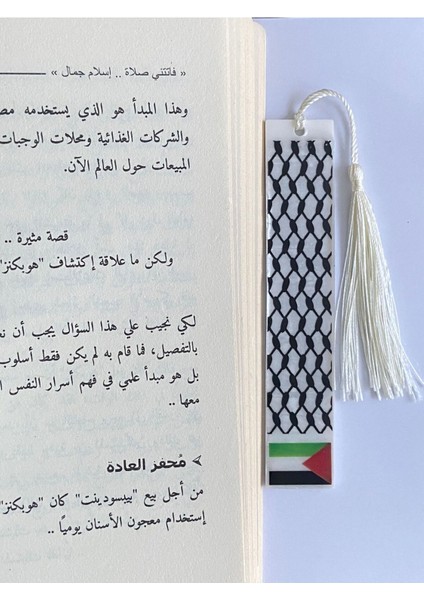 « فاتتني صلاة .. إسلام جمال »
وهذا المبدأ هو الذي يستخدمه
والشركات الغذائية ومحلات الوجبات
المبيعات حول العالم الآن.
قصة مثيرة ..
ولكن ما علاقة إكتشاف "هوبكنز"
لكي نجيب علي هذا السؤال يجب أن
بالتفصيل، فما قام به لم يكن فقط أسلوب
بل هو مبدأ علمي في فهم أسرار النفس
معها ..
مُحفز العادة
من أجل بيع "بيبسودينت" كان "هوبكنز"
إستخدام معجون الأسنان يوميًا ..